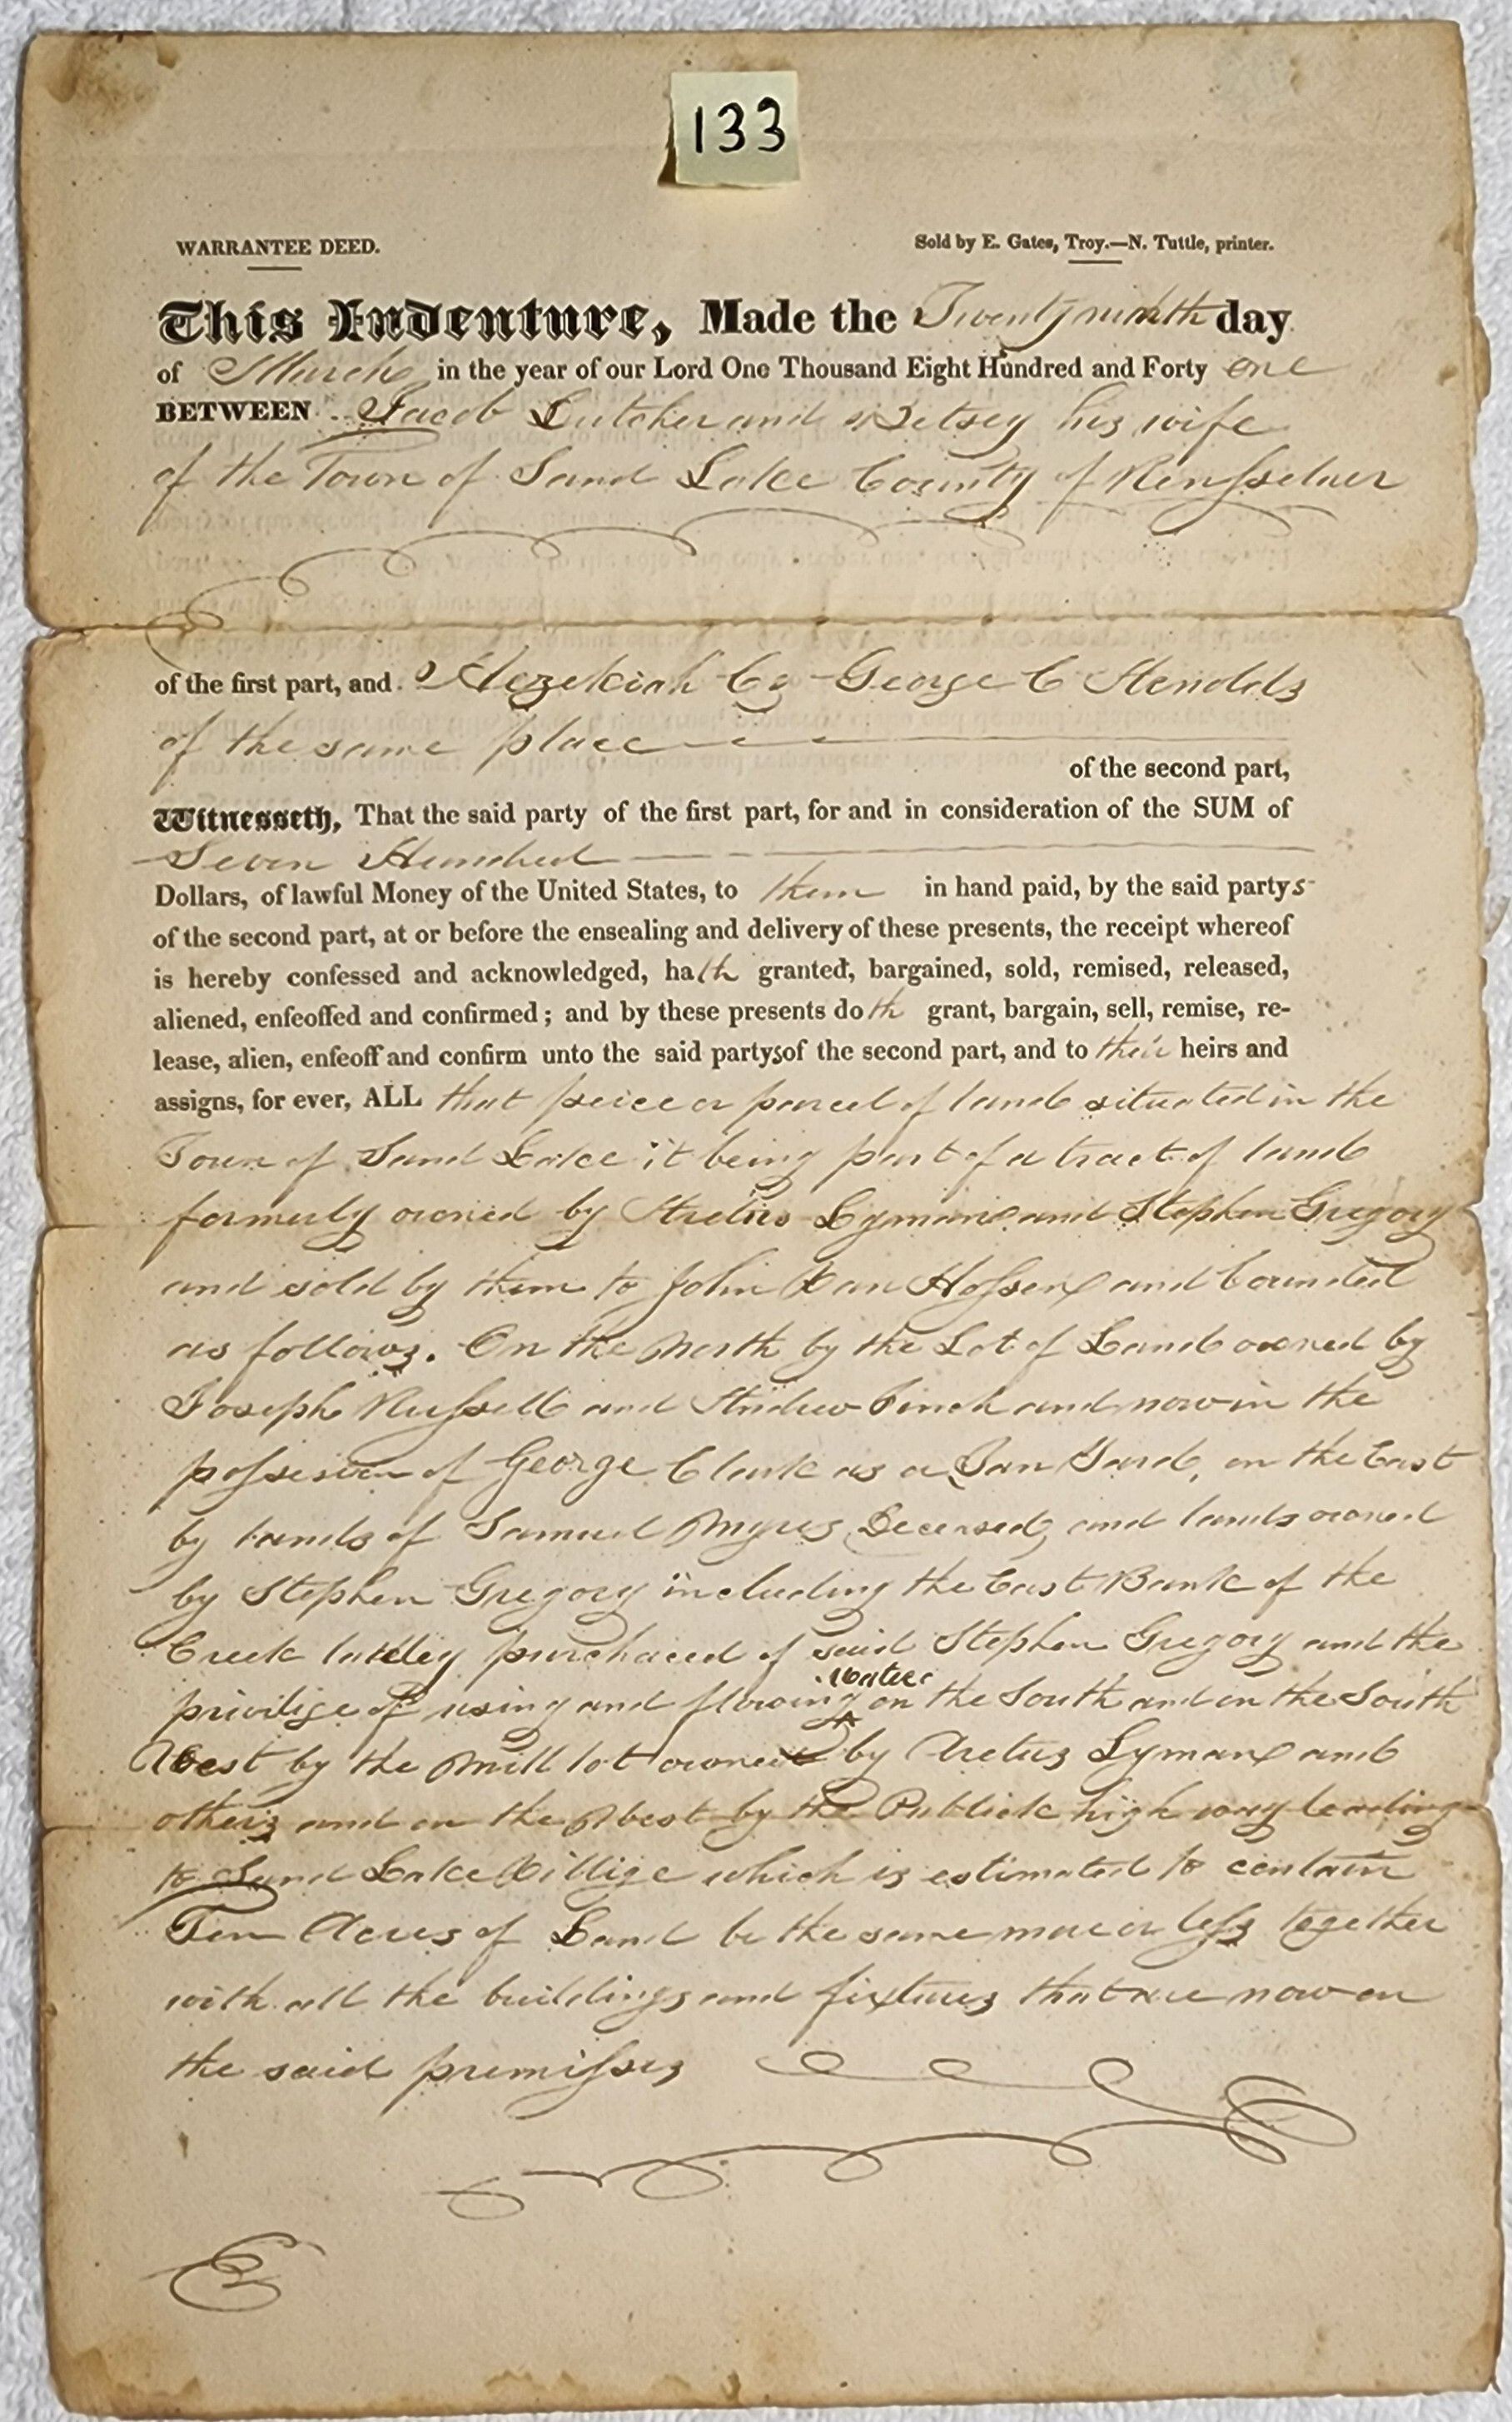 133
WARRANTEE DEED.
Sold by E. Gates, Troy.—N. Tuttle, printer.
This Indenture, Made the Twenty ninth day
of March in the year of our Lord One Thousand Eight Hundred and Forty one
BETWEEN Jacob Dutcher and Betsey his wife
of the Town of Sand Lake County of Rensselaer
of the first part, and Hezekiah C & George C
of the same place
of the second part,
Witnesseth, That the said party of the first part, for and in consideration of the SUM of
Seven Hundred
Dollars, of lawful Money of the United States, to them in hand paid, by the said partys
of the second part, at or before the ensealing and delivery of these presents, the receipt whereof
is hereby confessed and acknowledged, hath granted, bargained, sold, remised, released,
aliened, enfeoffed and confirmed; and by these presents doth grant, bargain, sell, remise, re-
lease, alien, enfeoff and confirm unto the said partys of the second part, and to their heirs and
assigns, for ever, ALL that peice or parcel of land situated in the
Town of Sand Lake it being part of a tract of land
formerly owned by Aretus Lyman and Stephen Gregory
and sold by them to John Van Hossen and bounded
as follows. On the North by the Lot of Land owned by
Joseph Russell and Andrew Finch and now in the
possesion of George Clark as a Tan Yard, on the East
by lands of Samuel Myres Deceased, and lands owned
by Stephen Gregory including the East Bank of the
Creek lately purchaced of said Stephen Gregory and the
water
privilige of using and flowing on the South and on the South
West by the Mill lot owned by Aretus Lyman and
others and on the West by the Publick high way leading
to Sand Lake Villige which is estimated to contain
Ten Acres of Land be the same more or less together
with all the buildings and fixtures that are now on
the said premisses